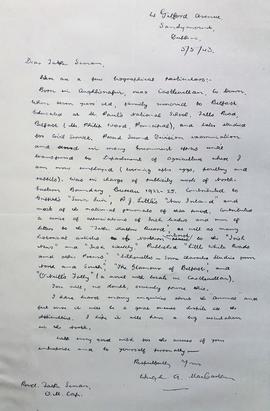 Gilford Avenue
Sandymount,
Dublin.
5/5/43.
Dear Father Senan,
Here are a few biographical particulars:-
Born in Aughlisnafin, near Castlewellan, Co. Down.
When seven years old, family removed to Belfast.
Educated at St. Paul's National School, Falls Road,
Belfast (Mr. Philip Ward, Principal), and later studied
for Civil Service. Passed Second Division examination
and served in many Government offices until
transferred to Department of Agriculture where I
am now employed (looking after eggs, poultry and
rabbits). Was in charge of publicity work of North-
Eastern Boundary Bureau 1922-25. Contributed to
Griffith's "Sinn Féin", "New Ireland" and
most of the national journals of that period. Contributed
a series of appreciations of Irish ladies and men of
letters to the "Father Mathew Record", as well as many
historical articles of northern interest to the "Irish
News" and "Irish Weekly". Published "Little White Roads
and other Poems", "Silhouettes: Some character studies from
North and South", "The Glamour of Belfast", and
"O'Neill's Folly" (a novel with locale in Castlewellan).
You will, no doubt, severely prune this.
I have heard many enquiries about the Annual and
feel sure it will be a great success despite all the
difficulties. I hope it will have a big circulation
in the North.
With every good wish for the success of your
enterprise and to yourself personally
Respectfully Yours
Hugh A. MacCartan
Revd. Father Senan,
O.M. Cap.